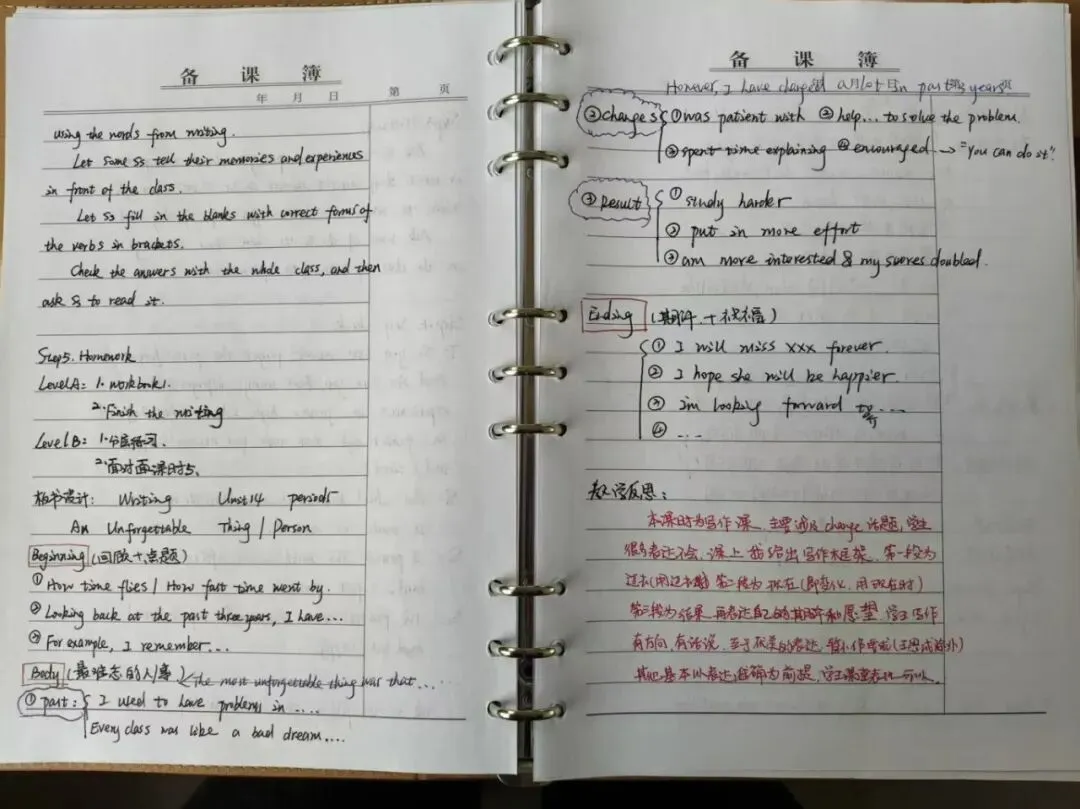 备 课 簿
年 月 日 第 页
using the words from writing.
Let some Ss tell their memories and experiences
in front of the class.
Let Ss fill in the blanks with correct forms of
the verbs in brackets.
Check the answers with the whole class, and then
ask Ss to read it.
Step5. Homework
Level A: 1. workbook1.
2. Finish the writing
Level B: 1. 分层练习.
2. 面对面课时5.
板书设计: Writing Unit14 period5
An Unforgettable Thing / Person
Beginning (回顾+点题)
① How time flies / How fast time went by.
② Looking back at the past three years, I have...
③ For example, I remember...
Body (最难忘的人/事) the most unforgettable thing was that...
① past: I used to have problems in ....
Every class was like a bad dream....
备 课 簿
However, I have changed a lot in past 3 years
② changes ① was patient with ② help... to solve the problem.
③ spent time explaining ④ encouraged → "You can do it".
③ Result ① study harder
② put in more effort
③ am more interested & my scores doubled.
Ending (期许 + 祝福)
① I will miss xxx forever.
② I hope she will be happier.
③ im looking forward to ...
④ ...
教学反思:
本课时为写作课, 主要涉及 change 话题, 学生
很多表达不会, 课上我给出写作框架, 第一段为
过去(用过去时) 第二段为现在(即变化, 用现在时)
第三段为结果, 再表达自己的期许和愿望, 学生写作
有方向, 有话说, 至于优美的表达, 暂不作要求
其他基本以表达准确为前提, 学生课堂表现可以.